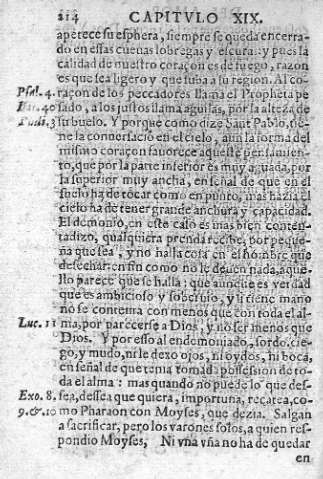 214 CAPITVLO XIX.
apetece su esphera, siempre se queda encerra-
do en essas cueuas lobregas y escura: y pues la
calidad de nuestro coraçon es de fuego, razon
es que sea ligero y que suba a su region. Al co-
Psal. 4. raçon de los peccadores llama el Propheta pe
40 sado, a los justos llama aguilas, por la alteza de
3 su buelo. Y porque como dize Sant Pablo, tie-
ne la conuersacio en el cielo, aun la forma del
mismo coraçon fauorece aqueste pensamien-
to, que por la parte inferior es muy aguda, por
la superior muy ancha, en señal de que en el
suelo ha de tocar como en punto, mas hazia el
cielo ha de tener grande anchura y capacidad.
El demonio, en este caso es mas bien conten-
tadizo, qualquiera prenda recibe, por peque-
ña que sea, y no halla cosa en el hombre que
desechar: en fin como no le deuen nada, aque-
llo parece que se halla: que aunque es verdad
que es ambicioso y soberuio, y si tiene mano
no se contenta con menos que con toda el al-
Luc. 11 ma, por parecerse a Dios, y no ser menos que
Dios. Y por esso al endemoniado, sordo, cie-
go, y mudo, ni le dexo ojos, ni oydos, ni boca,
en señal de que tenia tomada possession de to-
da el alma: mas quando no puede lo que des-
Exo. 8. sea, dessea que quiera, importuna, recatea, co-
9. & 10 mo Pharaon con Moyses, que dezia. Salgan
a sacrificar, pero los varones solos, a quien res-
pondio Moyses, Ni vna vña no ha de quedar
en